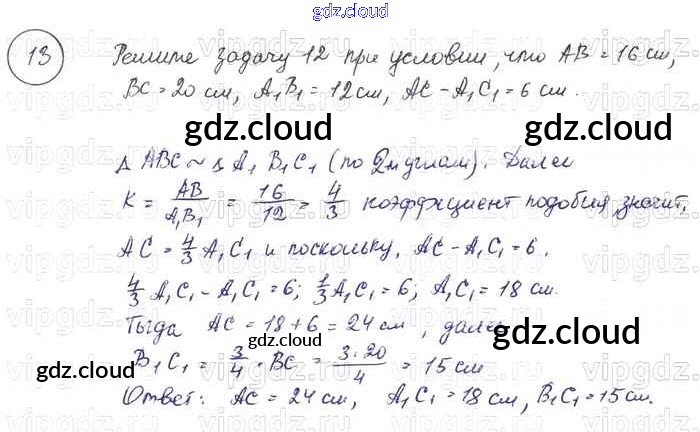 gdz.cloud
13 Решите задачу 12 при условии, что AB = 16 см,
BC = 20 см, A₁B₁ = 12 см, AC - A₁C₁ = 6 см.
gdz.cloud gdz.cloud
Δ ABC ~ Δ A₁B₁C₁ (по 2м углам). Далее
K = AB/A₁B₁ = 16/12 = 4/3 коэффициент подобия, значит,
AC = 4/3 A₁C₁ и поскольку, AC - A₁C₁ = 6,
4/3 A₁C₁ - A₁C₁ = 6; 1/3 A₁C₁ = 6; A₁C₁ = 18 см.
Тогда AC = 18 + 6 = 24 см, далее
gdz.cloud
B₁C₁ = 3/4 · BC = 3·20/4 = 15 см
gdz.cloud
Ответ: AC = 24 см, A₁C₁ = 18 см, B₁C₁ = 15 см.
gdz.cloud